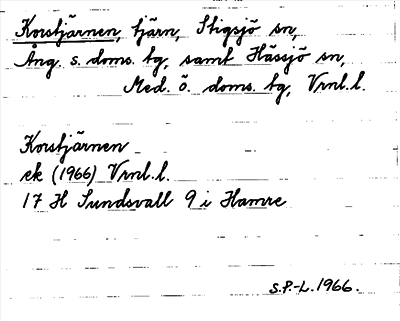 Korstjärnen, tjärn, Stigsjö sn,
Ång. s. doms. tg, samt Hässjö sn,
Med. ö. doms. tg, Vrnl. l.
Korstjärnen
ek (1966) Vrnl. l.
17 H Sundsvall 9 i Hamre
S.P.-L. 1966.